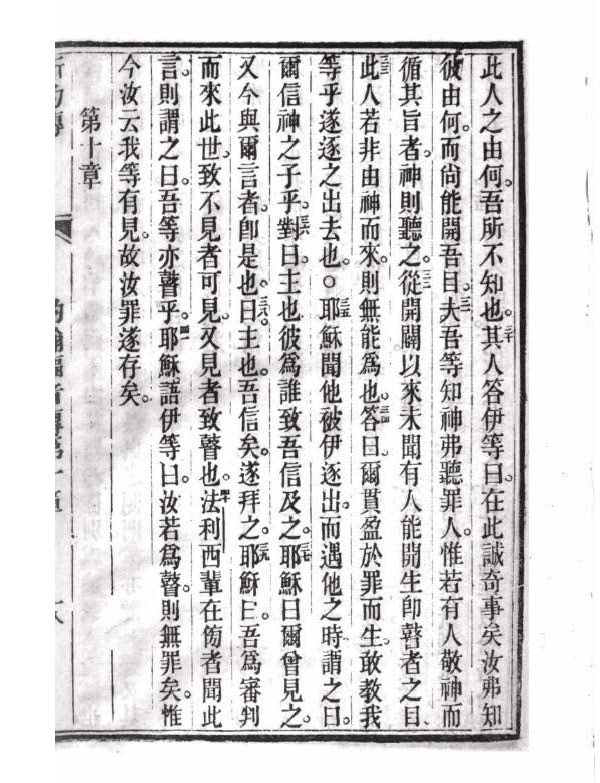 此人之由何。吾所不知也。三十其人答伊等曰。在此誠奇事矣汝弗知
彼由何。而尙能開吾目。三一夫吾等知神弗聽罪人。惟若有人敬神而
循其旨者。神則聽之。三二從開闢以來未聞有人能開生卽瞽者之目
三三此人若非由神而來。則無能爲也。三四答曰。爾貫盈於罪而生。敢教我
等乎遂逐之出去也。○三五耶穌聞他被伊逐出。而遇他之時謂之曰。
爾信神之子乎。三六對曰。主也彼爲誰致吾信及之。三七耶穌曰爾曾見之。
又今與爾言者卽是也。三八曰。主也。吾信矣。遂拜之。三九耶穌曰。吾爲審判
而來此世。致不見者可見。又見者致瞽也。四十法利西輩在侚者聞此
言。則謂之曰。吾等亦瞽乎。四一耶穌語伊等曰。汝若爲瞽。則無罪矣。惟
今汝云我等有見。故汝罪遂存矣。
第十章